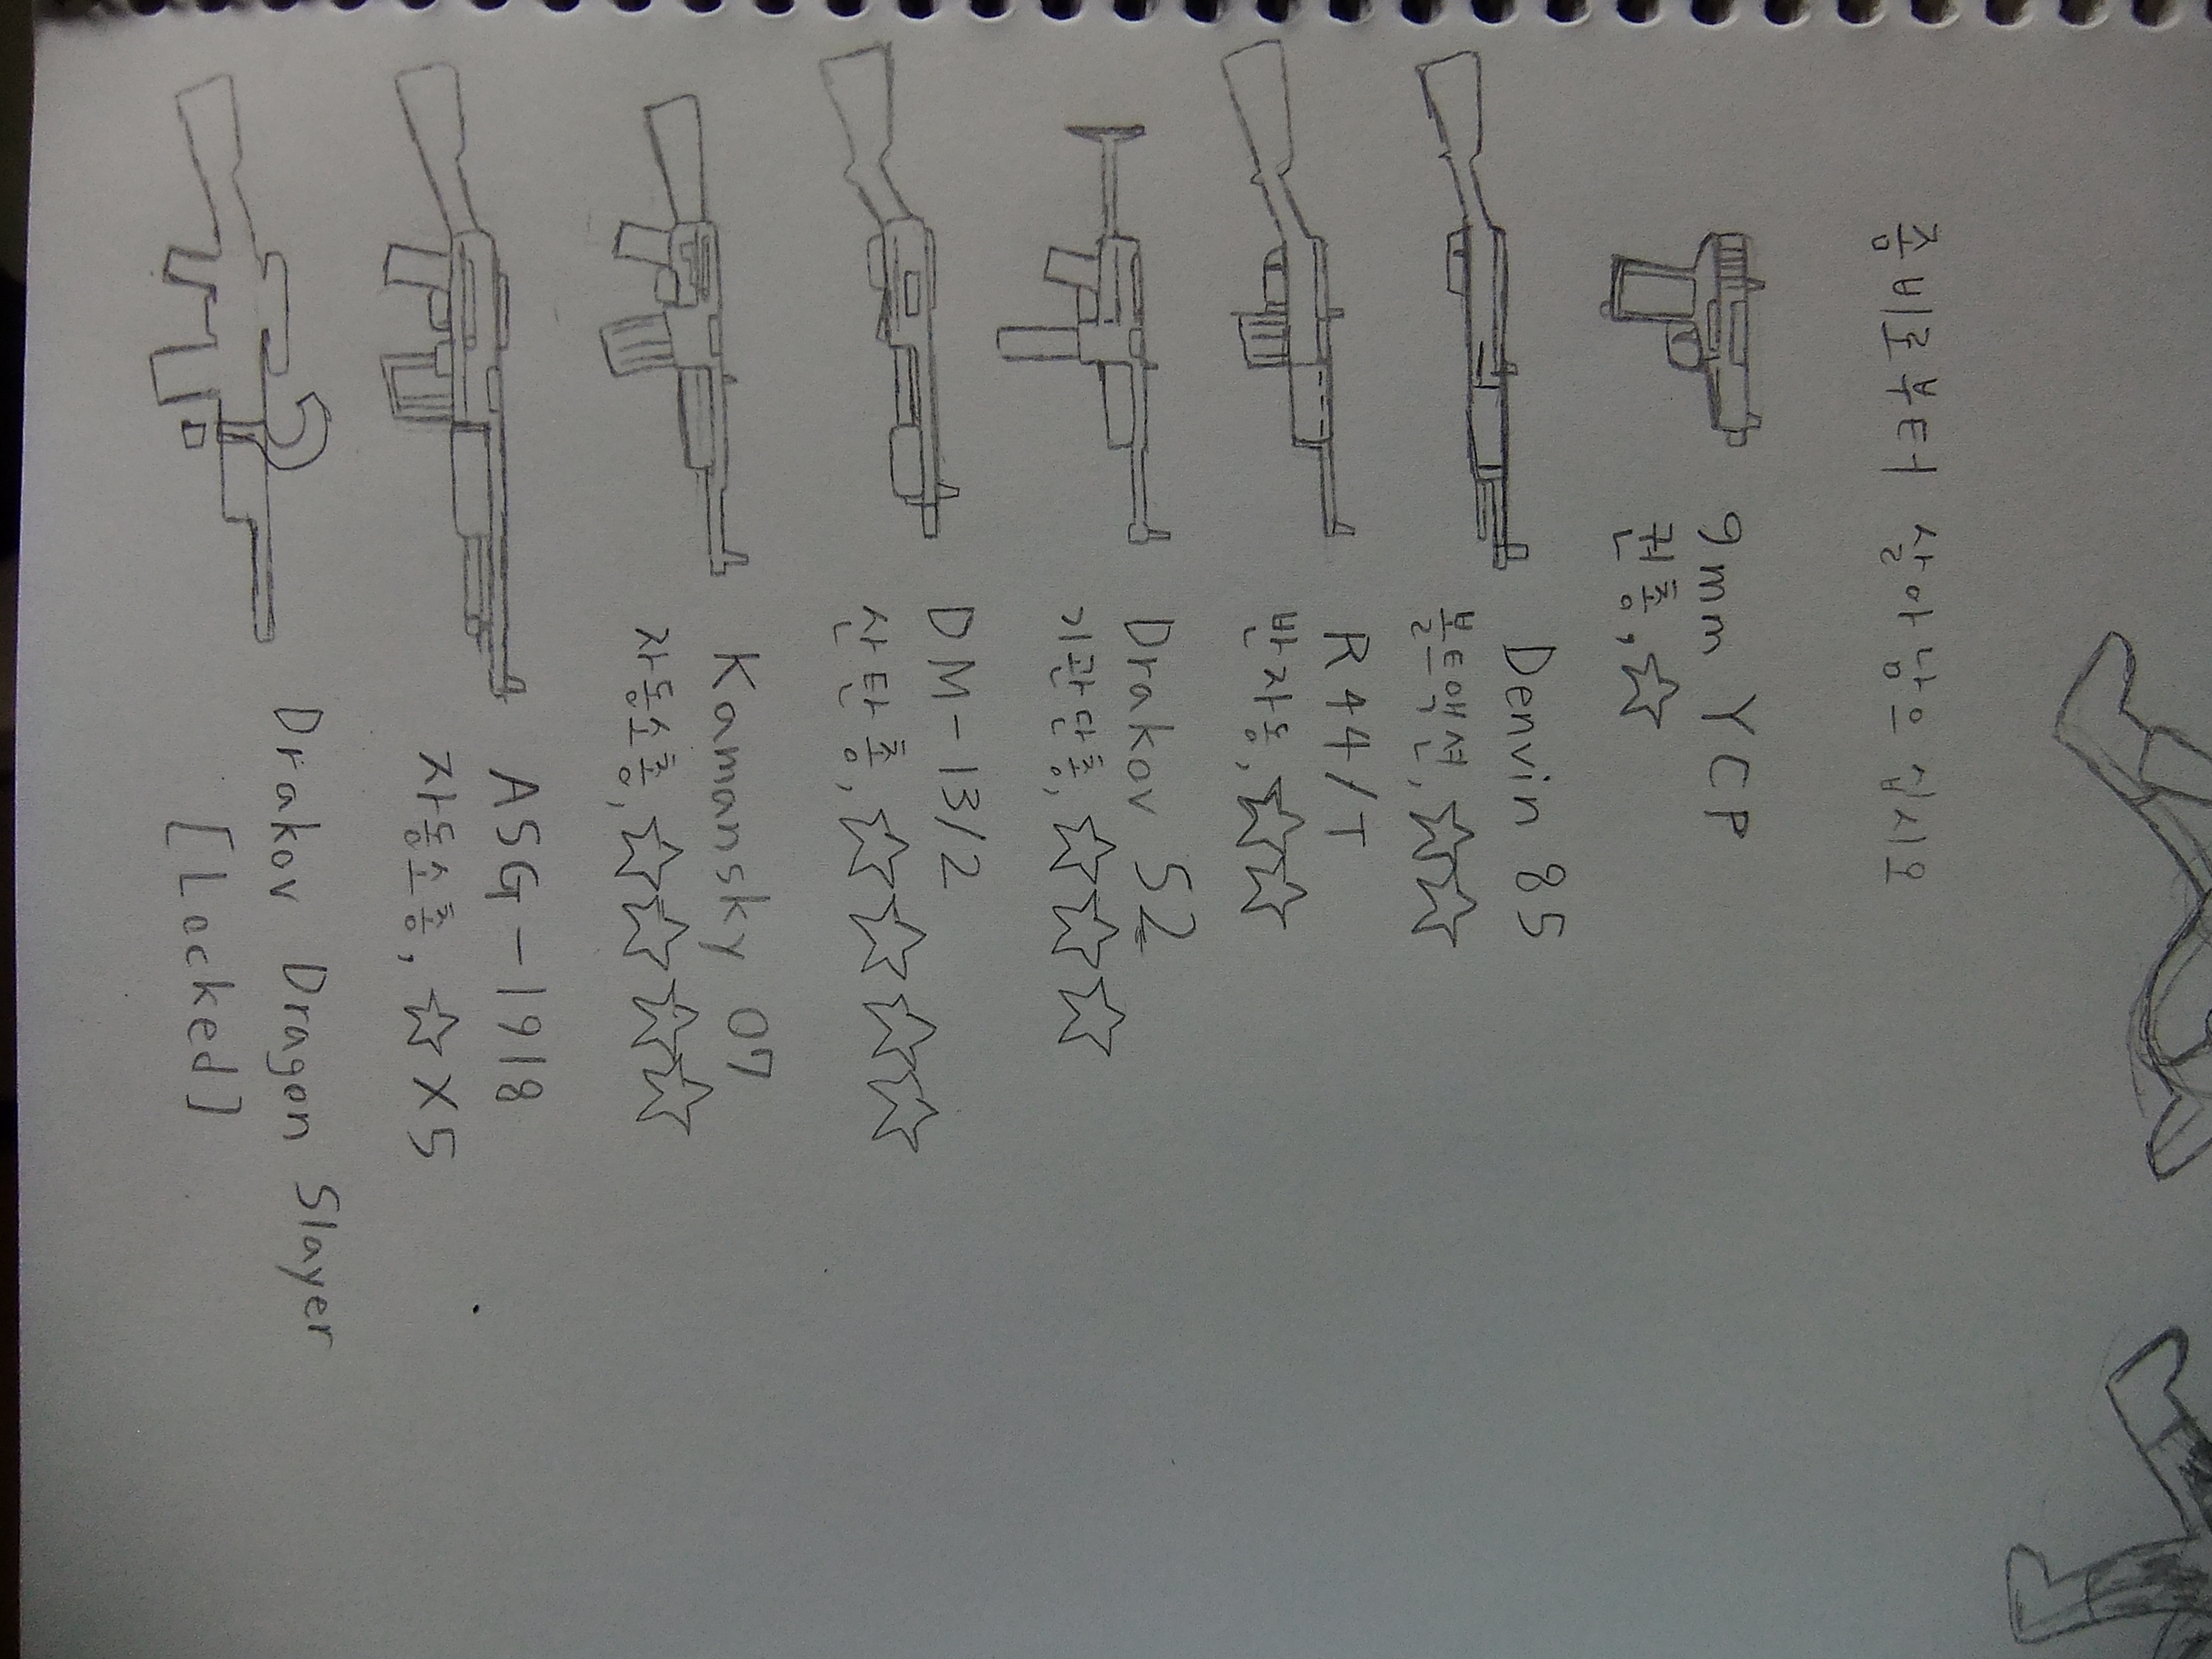 좀비로부터 살아남으십시오
9mm YCP
권총, ☆
Denvin 85
볼트액션, ☆☆
R44/T
반자동, ☆☆
Drakov 52
기관단총, ☆☆☆
DM-13/2
산탄총, ☆☆☆☆
Kamansky 07
자동소총, ☆☆☆☆
ASG-1918
자동소총, ☆X5
Drakov Dragon Slayer
[Locked]